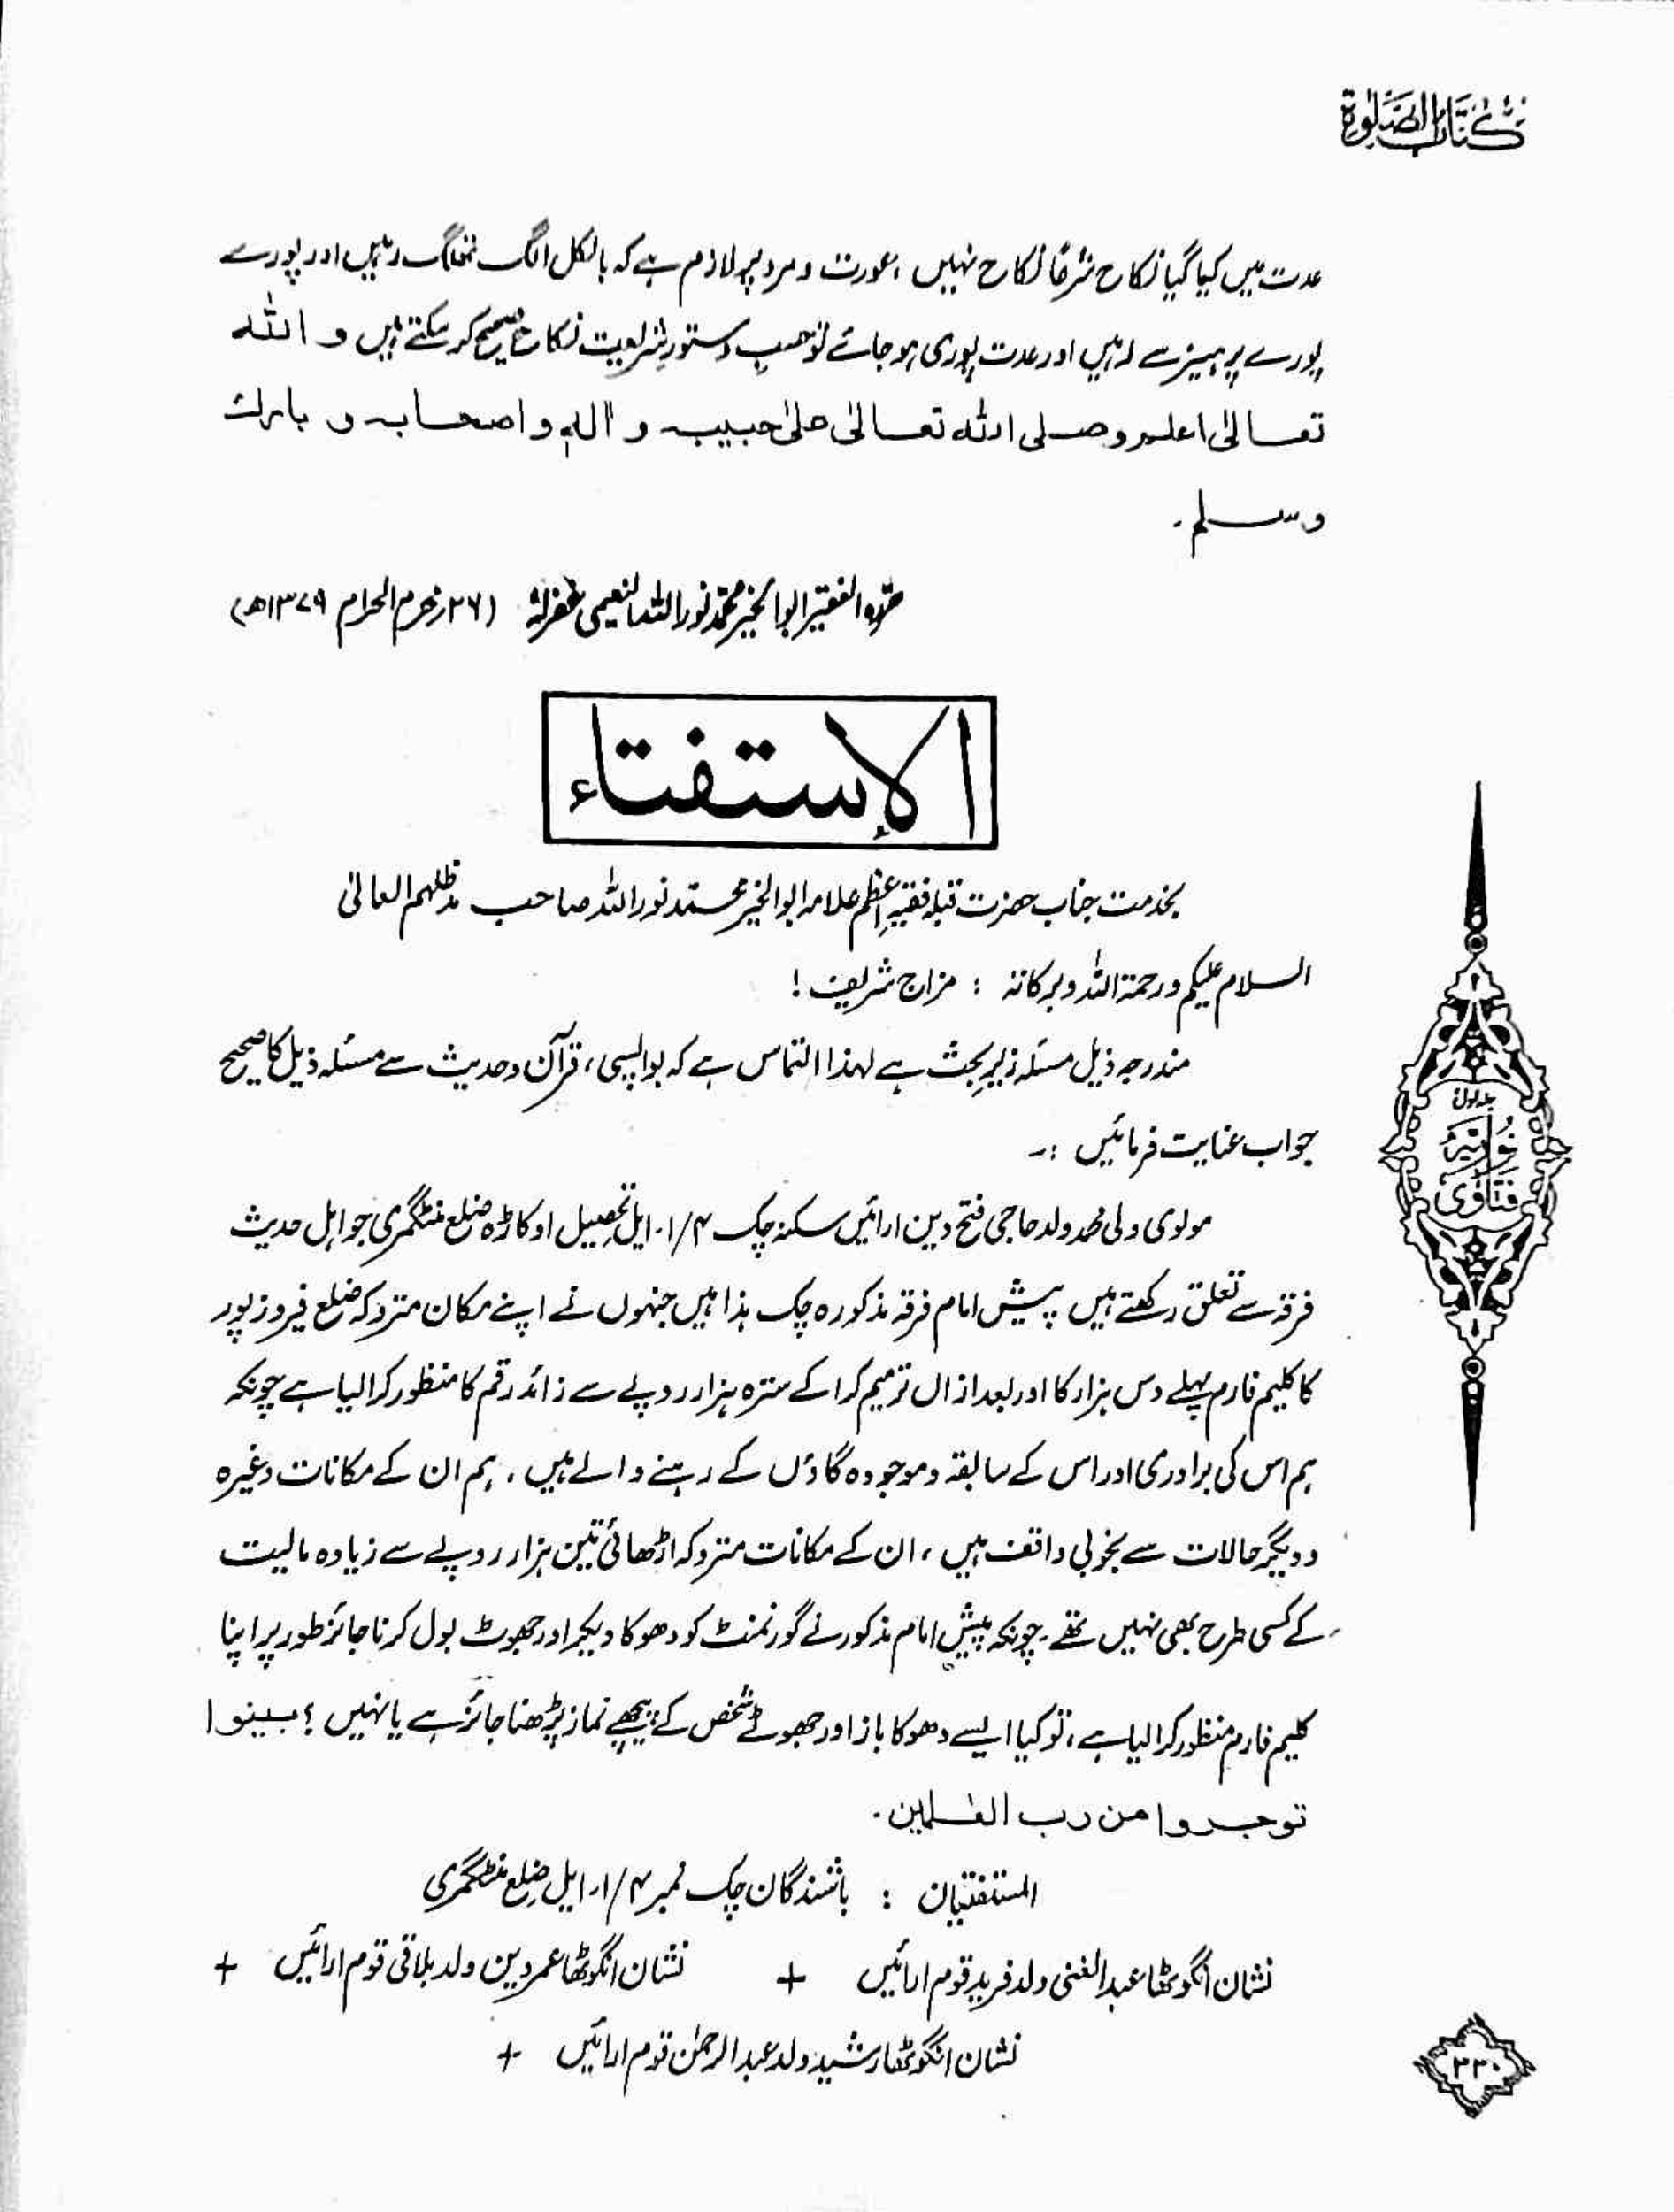 كتاب الصلوٰة
عدت میں کیا گیا نکاح شرعًا نکاح نہیں ، عورت و مرد پر لازم ہے کہ بالکل الگ تھلگ رہیں اور پورے
پورے پرہیز سے رہیں اور عدت پوری ہو جائے تو حسبِ دستورِ شریعت نکاح صحیح کر سکتے ہیں و اللہ
تعالیٰ اعلم و صلی اللہ تعالیٰ علیٰ حبیبہ و اٰلہٖ و اصحابہ و بارك
وسلم۔
حرّرہ الفقیر ابوالخیر محمّد نور اللہ النعیمی غفرلہٗ (۲۶ محرم الحرام ۱۳۷۹ھ)
الإستفتاء
بخدمت جناب حضرت قبلہ فقیہِ اعظم علامہ ابوالخیر محمّد نور اللہ صاحب مدظلہم العالیٰ
السلام علیکم ورحمۃ اللہ وبرکاتہٗ : مزاج شریف !
مندرجہ ذیل مسئلہ زیرِ بحث ہے لہذا التماس ہے کہ بواپسی ، قرآن و حدیث سے مسئلہ ذیل کا صحیح
جواب عنایت فرمائیں :۔
مولوی ولی محمد ولد حاجی فتح دین ارائیں سکنہ چک ۴/۱۔ایل تحصیل اوکاڑہ ضلع منٹگمری جو اہل حدیث
فرقہ سے تعلق رکھتے ہیں پیش امام فرقہ مذکورہ چک ہذا ہیں جنہوں نے اپنے مکان متروکہ ضلع فیروز پور
کا کلیم فارم پہلے دس ہزار کا اور بعد ازاں ترمیم کرا کے سترہ ہزار روپے سے زائد رقم کا منظور کرا لیا ہے چونکہ
ہم اس کی برادری اور اس کے سابقہ و موجودہ گاؤں کے رہنے والے ہیں ، ہم ان کے مکانات وغیرہ
و دیگر حالات سے بخوبی واقف ہیں ، ان کے مکانات متروکہ اڑھائی تین ہزار روپے سے زیادہ مالیت
کے کسی طرح بھی نہیں تھے ۔ چونکہ پیش امام مذکور نے گورنمنٹ کو دھوکا دیکر اور جھوٹ بول کر ناجائز طور پر اپنا
کلیم فارم منظور کرا لیا ہے ، تو کیا ایسے دھوکا باز اور جھوٹے شخص کے پیچھے نماز پڑھنا جائز ہے یا نہیں ؟ بینوا
توجروا من رب العٰلمین ۔
المستفتیان : باشندگان چک نمبر ۴/۱۔ایل ضلع منٹگمری
نشان انگوٹھا عبدالغنی ولد فرید قوم ارائیں + نشان انگوٹھا عمر دین ولد بلاقی قوم ارائیں +
نشان انگوٹھا رشید ولد عبدالرحمٰن قوم ارائیں +
جلد اول
فتاویٰ نوریہ
۲۳۰